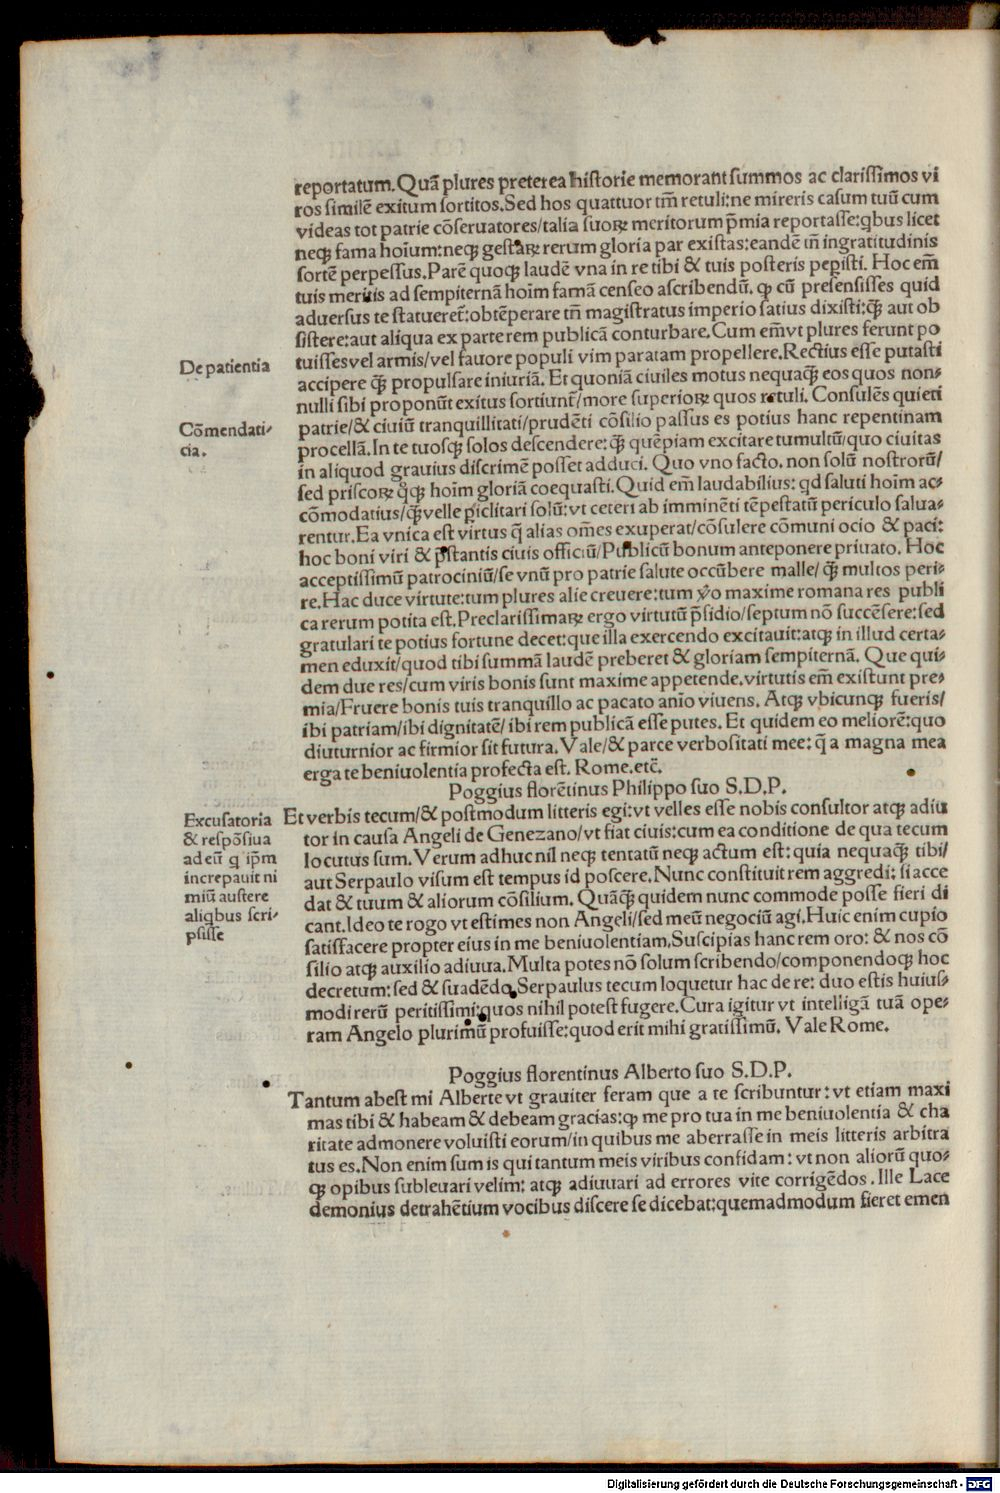 reportatum. Quā plures preterea historie memorant summos ac clarissimos vi
ros similē exitum sortitos. Sed hos quattuor tm̄ retuli: ne mireris casum tuū cum
videas tot patrie cōseruatores/talia suoꝝ meritorum p̄mia reportasse: qbus licet
neqꝫ fama hoīum: neqꝫ gestaꝝ rerum gloria par existas: eandē tn̄ ingratitudinis
sortē perpessus. Parē quoqꝫ laudē vna in re tibi & tuis posteris peꝑisti. Hoc em̄
tuis meritis ad sempiternā hoīm famā censeo ascribendū. ꝙ cū presensisses quid
aduersus te statueret̄: obtēperare tn̄ magistratus imperio satius dixisti: qꝫ̄ aut ob
sistere: aut aliqua ex parte rem publicā conturbare. Cum em̄ vt plures ferunt po
De patientia
tuisses vel armis/vel fauore populi vim paratam propellere. Rectius esse putasti
accipere qꝫ̄ propulsare iniuriā. Et quoniā ciuiles motus nequaqꝫ̄ eos quos non⸗
nulli sibi proponūt exitus sortiunt̄/more superioꝝ quos retuli. Consulēs quieti
Cōmendati⸗
cia.
patrie/& ciuiū tranquillitati/prudēti cōsilio passus es potius hanc repentinam
procellā. In te tuosqꝫ solos descendere: qꝫ̄ quēpiam excitare tumultū/quo ciuitas
in aliquod grauius discrimē posset adduci. Quo vno facto. non solū nostrorū/
sed priscoꝝ qͥqꝫ hoīm gloriā coequasti. Quid em̄ laudabilius: qd saluti hoīm ac⸗
cōmodatius/qꝫ̄ velle ꝑiclitari solū: vt ceteri ab imminēti tēpestatū periculo salua⸗
rentur. Ea vnica est virtus q̄ alias om̄es exuperat/cōsulere cōmuni ocio & paci:
hoc boni viri & p̄stantis ciuis officiū/Publicū bonum anteponere priuato. Hoc
acceptissimū patrociniū/se vnū pro patrie salute occūbere malle/qꝫ̄ multos peri⸗
re. Hac duce virtute: tum plures alie creuere: tum v̊o maxime romana res publi
ca rerum potita est. Preclarissimaꝝ ergo virtutū p̄sidio/septum nō succēsere: sed
gratulari te potius fortune decet: que illa exercendo excitauit: atqꝫ in illud certa⸗
men eduxit/quod tibi summā laudē preberet & gloriam sempiternā. Que qui⸗
dem due res/cum viris bonis sunt maxime appetende. virtutis em̄ existunt pre⸗
mia/Fruere bonis tuis tranquillo ac pacato anīo viuens. Atqꝫ vbicunqꝫ fueris/
ibi patriam/ibi dignitatē/ibi rem publicā esse putes. Et quidem eo meliorē: quo
diuturnior ac firmior sit futura. Vale/& parce verbositati mee: q̄ a magna mea
erga te beniuolentia profecta est. Rome. etc̄.
Poggius florētinus Philippo suo S.D.P.
Excusatoria
& respōsiua
ad eū q ip̄m
increpauit ni
miū austere
aliqbus scri⸗
psisse
Et verbis tecum/& postmodum litteris egi: vt velles esse nobis consultor atqꝫ adiu
tor in causa Angeli de Genezano/vt fiat ciuis: cum ea conditione de qua tecum
locutus sum. Verum adhuc nil neqꝫ tentatū neqꝫ actum est: quia nequaqꝫ̄ tibi/
aut Serpaulo visum est tempus id poscere. Nunc constituit rem aggredi: si acce
dat & tuum & aliorum cōsilium. Quāqꝫ̄ quidem nunc commode posse fieri di
cant. Ideo te rogo vt estimes non Angeli/sed meū negociū agi. Huic enim cupio
satisfacere propter eius in me beniuolentiam. Suscipias hanc rem oro: & nos cō
silio atqꝫ auxilio adiuua. Multa potes nō solum scribendo/componendoqꝫ hoc
decretum: sed & suadēdo. Serpaulus tecum loquetur hac de re: duo estis huius⸗
modi rerū peritissimi: quos nihil potest fugere. Cura igitur vt intelligā tuā ope⸗
ram Angelo plurimū profuisse: quod erit mihi gratissimū. Vale Rome.
Poggius florentinus Alberto suo S.D.P.
Tantum abest mi Alberte vt grauiter feram que a te scribuntur: vt etiam maxi
mas tibi & habeam & debeam gracias: ꝙ me pro tua in me beniuolentia & cha
ritate admonere voluisti eorum/in quibus me aberrasse in meis litteris arbitra
tus es. Non enim sum is qui tantum meis viribus confidam: vt non aliorū quo⸗
qꝫ opibus subleuari velim: atqꝫ adiuuari ad errores vite corrigēdos. Ille Lace
demonius detrahētium vocibus discere se dicebat: quemadmodum fieret emen
Digitalisierung gefördert durch die Deutsche Forschungsgemeinschaft - DFG